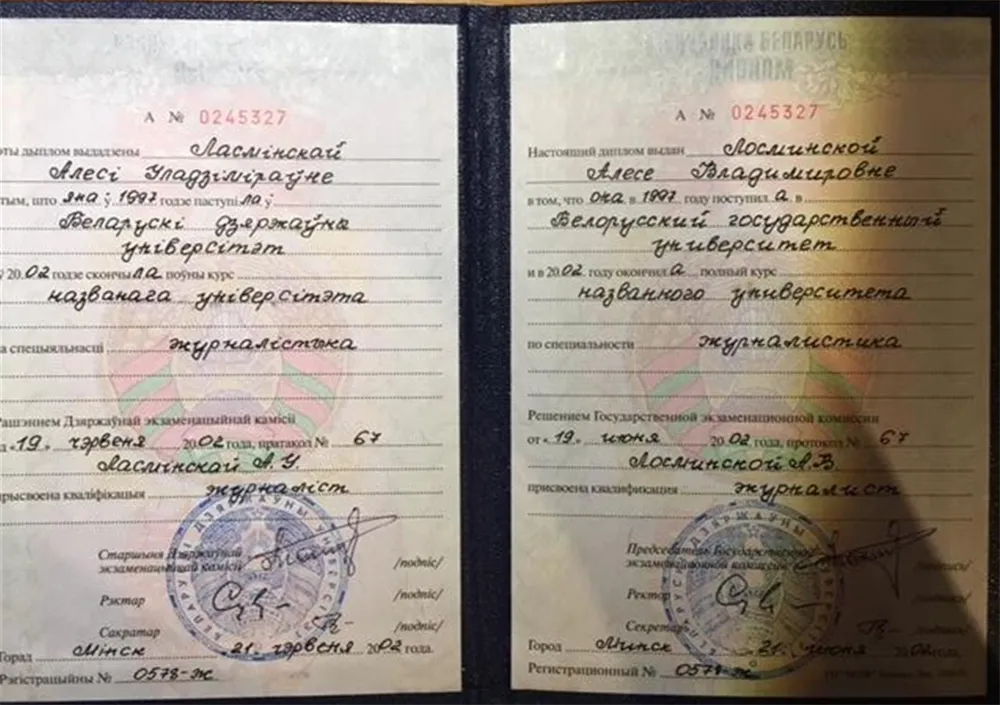 А № 0245327
дыплом выдадзены Ласмінскай
Алесі Уладзіміраўне
тым, што яна ў 1997 годзе паступіла ў
Беларускі дзяржаўны
універсітэт
ў 2002 годзе скончыла поўны курс
названага універсітэта
спецыяльнасці журналістыка
Дзяржаўнай экзаменацыйнай камісіі
«19» чэрвеня 2002 года, пратакол № 67
Ласмінскай А.У.
прысвоена кваліфікацыя журналіст
Старшыня Дзяржаўнай
экзаменацыйнай камісіі /подпіс/
Рэктар /подпіс/
Сакратар /подпіс/
Горад Мінск 21 чэрвеня 2002 года.
Рэгістрацыйны № 0578-ж
РЭСПУБЛИКА БЕЛАРУСЬ
ДИПЛОМ
А № 0245327
Настоящий диплом выдан Лосминской
Алесе Владимировне
в том, что она в 1997 году поступила в
Белорусский государственный
университет
и в 2002 году окончила полный курс
названного университета
по специальности журналистика
Решением Государственной экзаменационной комиссии
от «19» июня 2002 года, протокол № 67
Лосминской А.В.
присвоена квалификация журналист
Председатель Государственной
экзаменационной комиссии
Ректор
Секретарь
Город Минск 21 июня 2002 года.
Регистрационный № 0578-ж